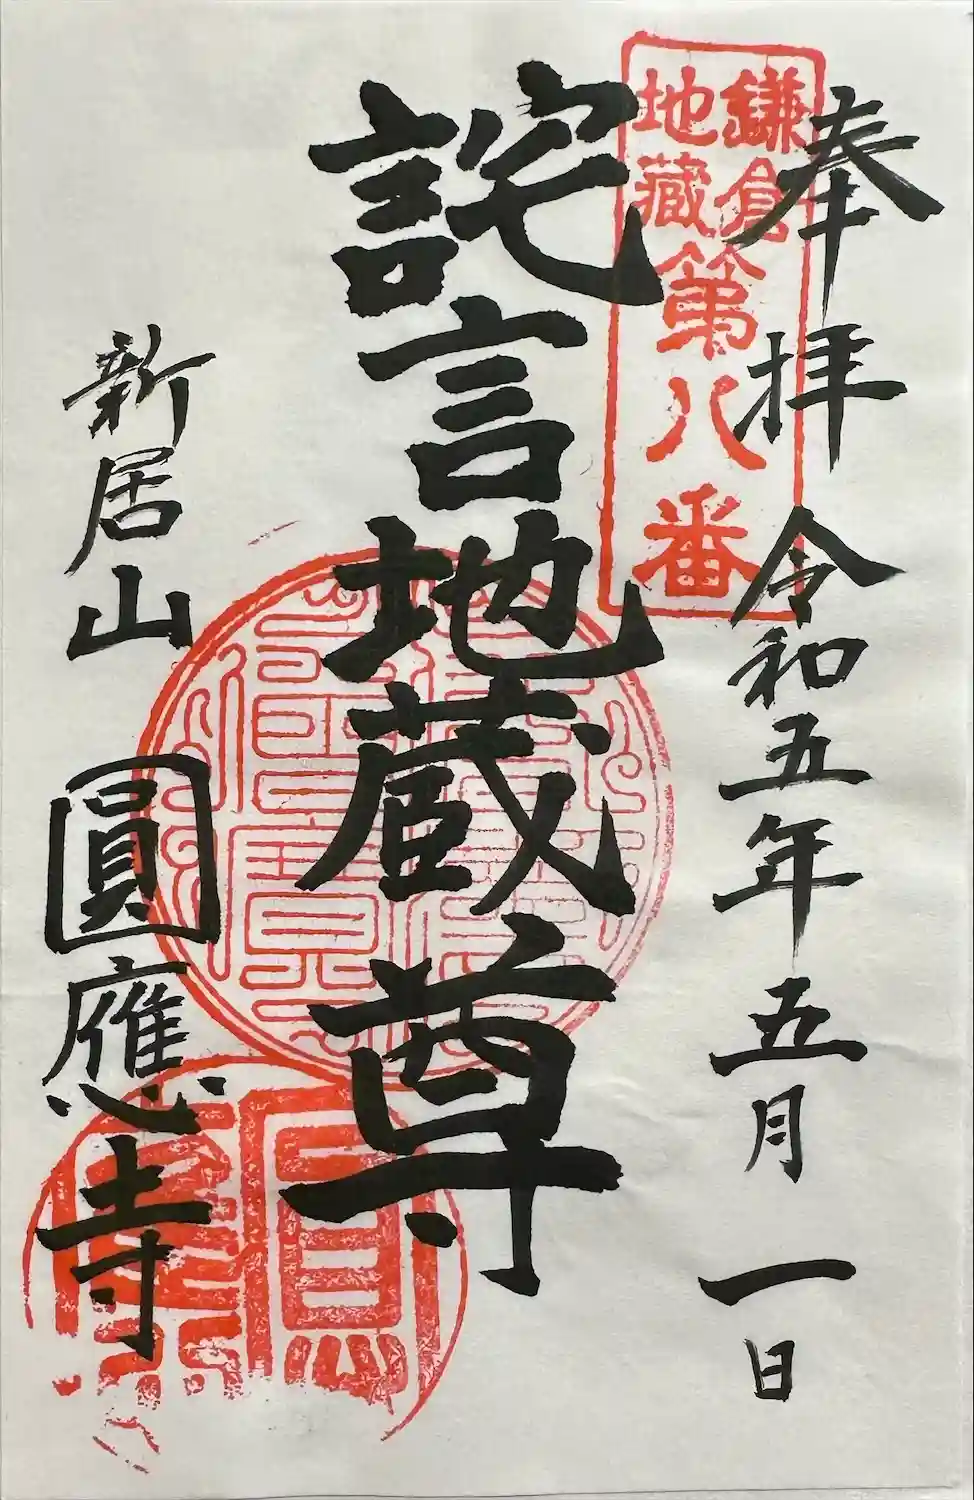 奉拝 令和五年五月一日
鎌倉
地蔵
第八番
詫言地蔵尊
新居山
圓應寺